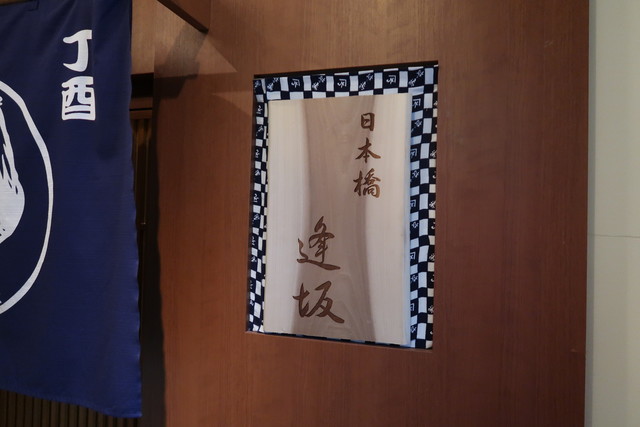 丁酉
日本橋
逢坂